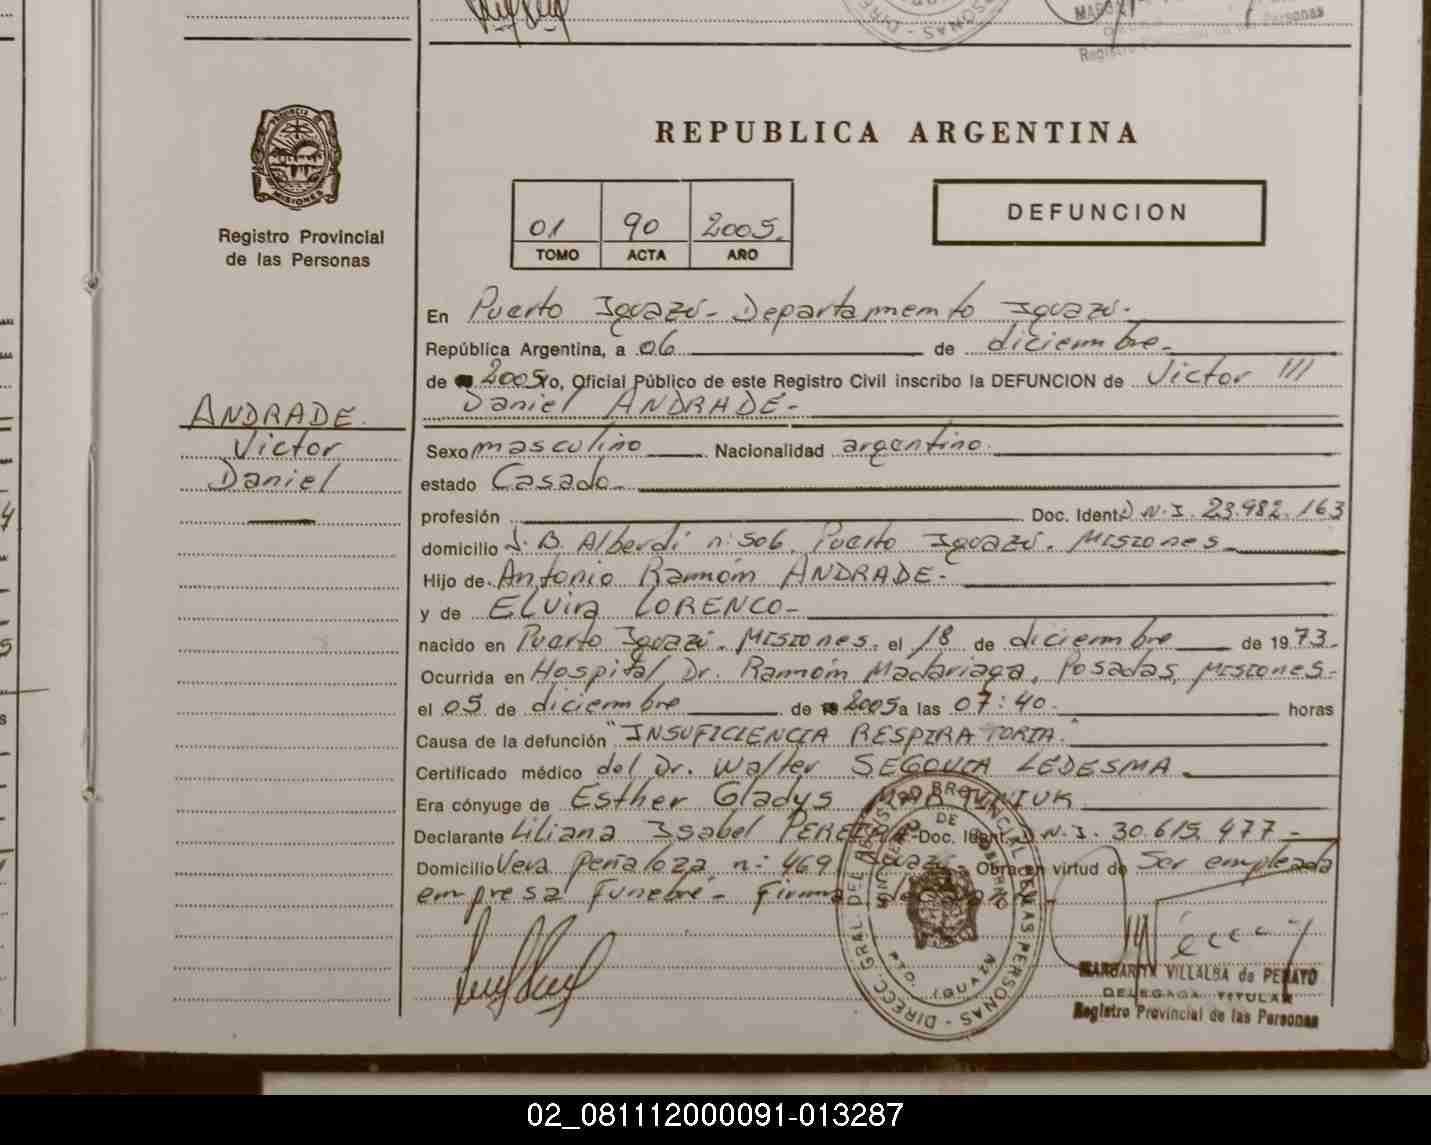 REPUBLICA ARGENTINA
PROVINCIA DE
MISIONES
Registro Provincial
de las Personas
01 90 2005.
TOMO ACTA AÑO
DEFUNCION
ANDRADE.
Victor
Daniel
En Puerto Iguazú - Departamento Iguazú -
República Argentina, a 06 de diciembre -
de 2005 Yo, Oficial Público de este Registro Civil inscribo la DEFUNCION de Victor ///
Daniel ANDRADE -
Sexo masculino Nacionalidad argentino.
estado Casado -
profesión Doc. Ident. D.N.I. 23.982.163
domicilio J. B. Alberdi n: 506. Puerto Iguazú. Misiones
Hijo de Antonio Ramón ANDRADE -
y de ELvira LORENCO -
nacido en Puerto Iguazú. Misiones. el 18 de diciembre de 1973.
Ocurrida en Hospital Dr. Ramón Madariaga, Posadas, Misiones -
el 05 de diciembre de 2005 a las 07:40. horas
Causa de la defunción "INSUFICIENCIA RESPIRATORIA."
Certificado médico del Dr. Walter SEGOVIA LEDESMA
Era cónyuge de Esther Gladys
Declarante Liliana Isabel Doc. Ident. D.N.I. 30.615.477 -
Domicilio Vera Peñaloza n: 469 Iguazú - Obra en virtud de Ser empleada
empresa Funebre - Firma
PTO. IGUAZU
MARGARITA VILLALBA de PERAYO
DELEGADA TITULAR
Registro Provincial de las Personas
02_081112000091-013287